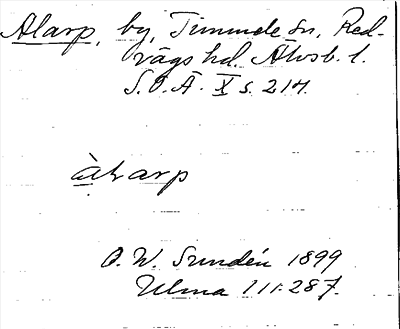 Alarp, by, Timmele sn, Red-
vägs hd. Älvsb. l.
S.O.Ä. X s. 214.
àlarp
O. W. Sundén 1899
Ulma 111:287.